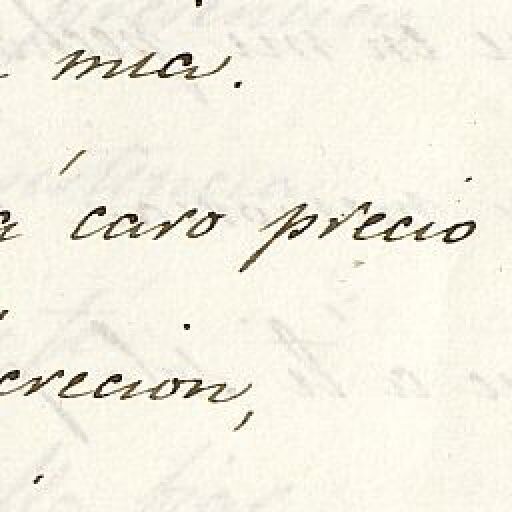 mia.
á caro precio
crecion,